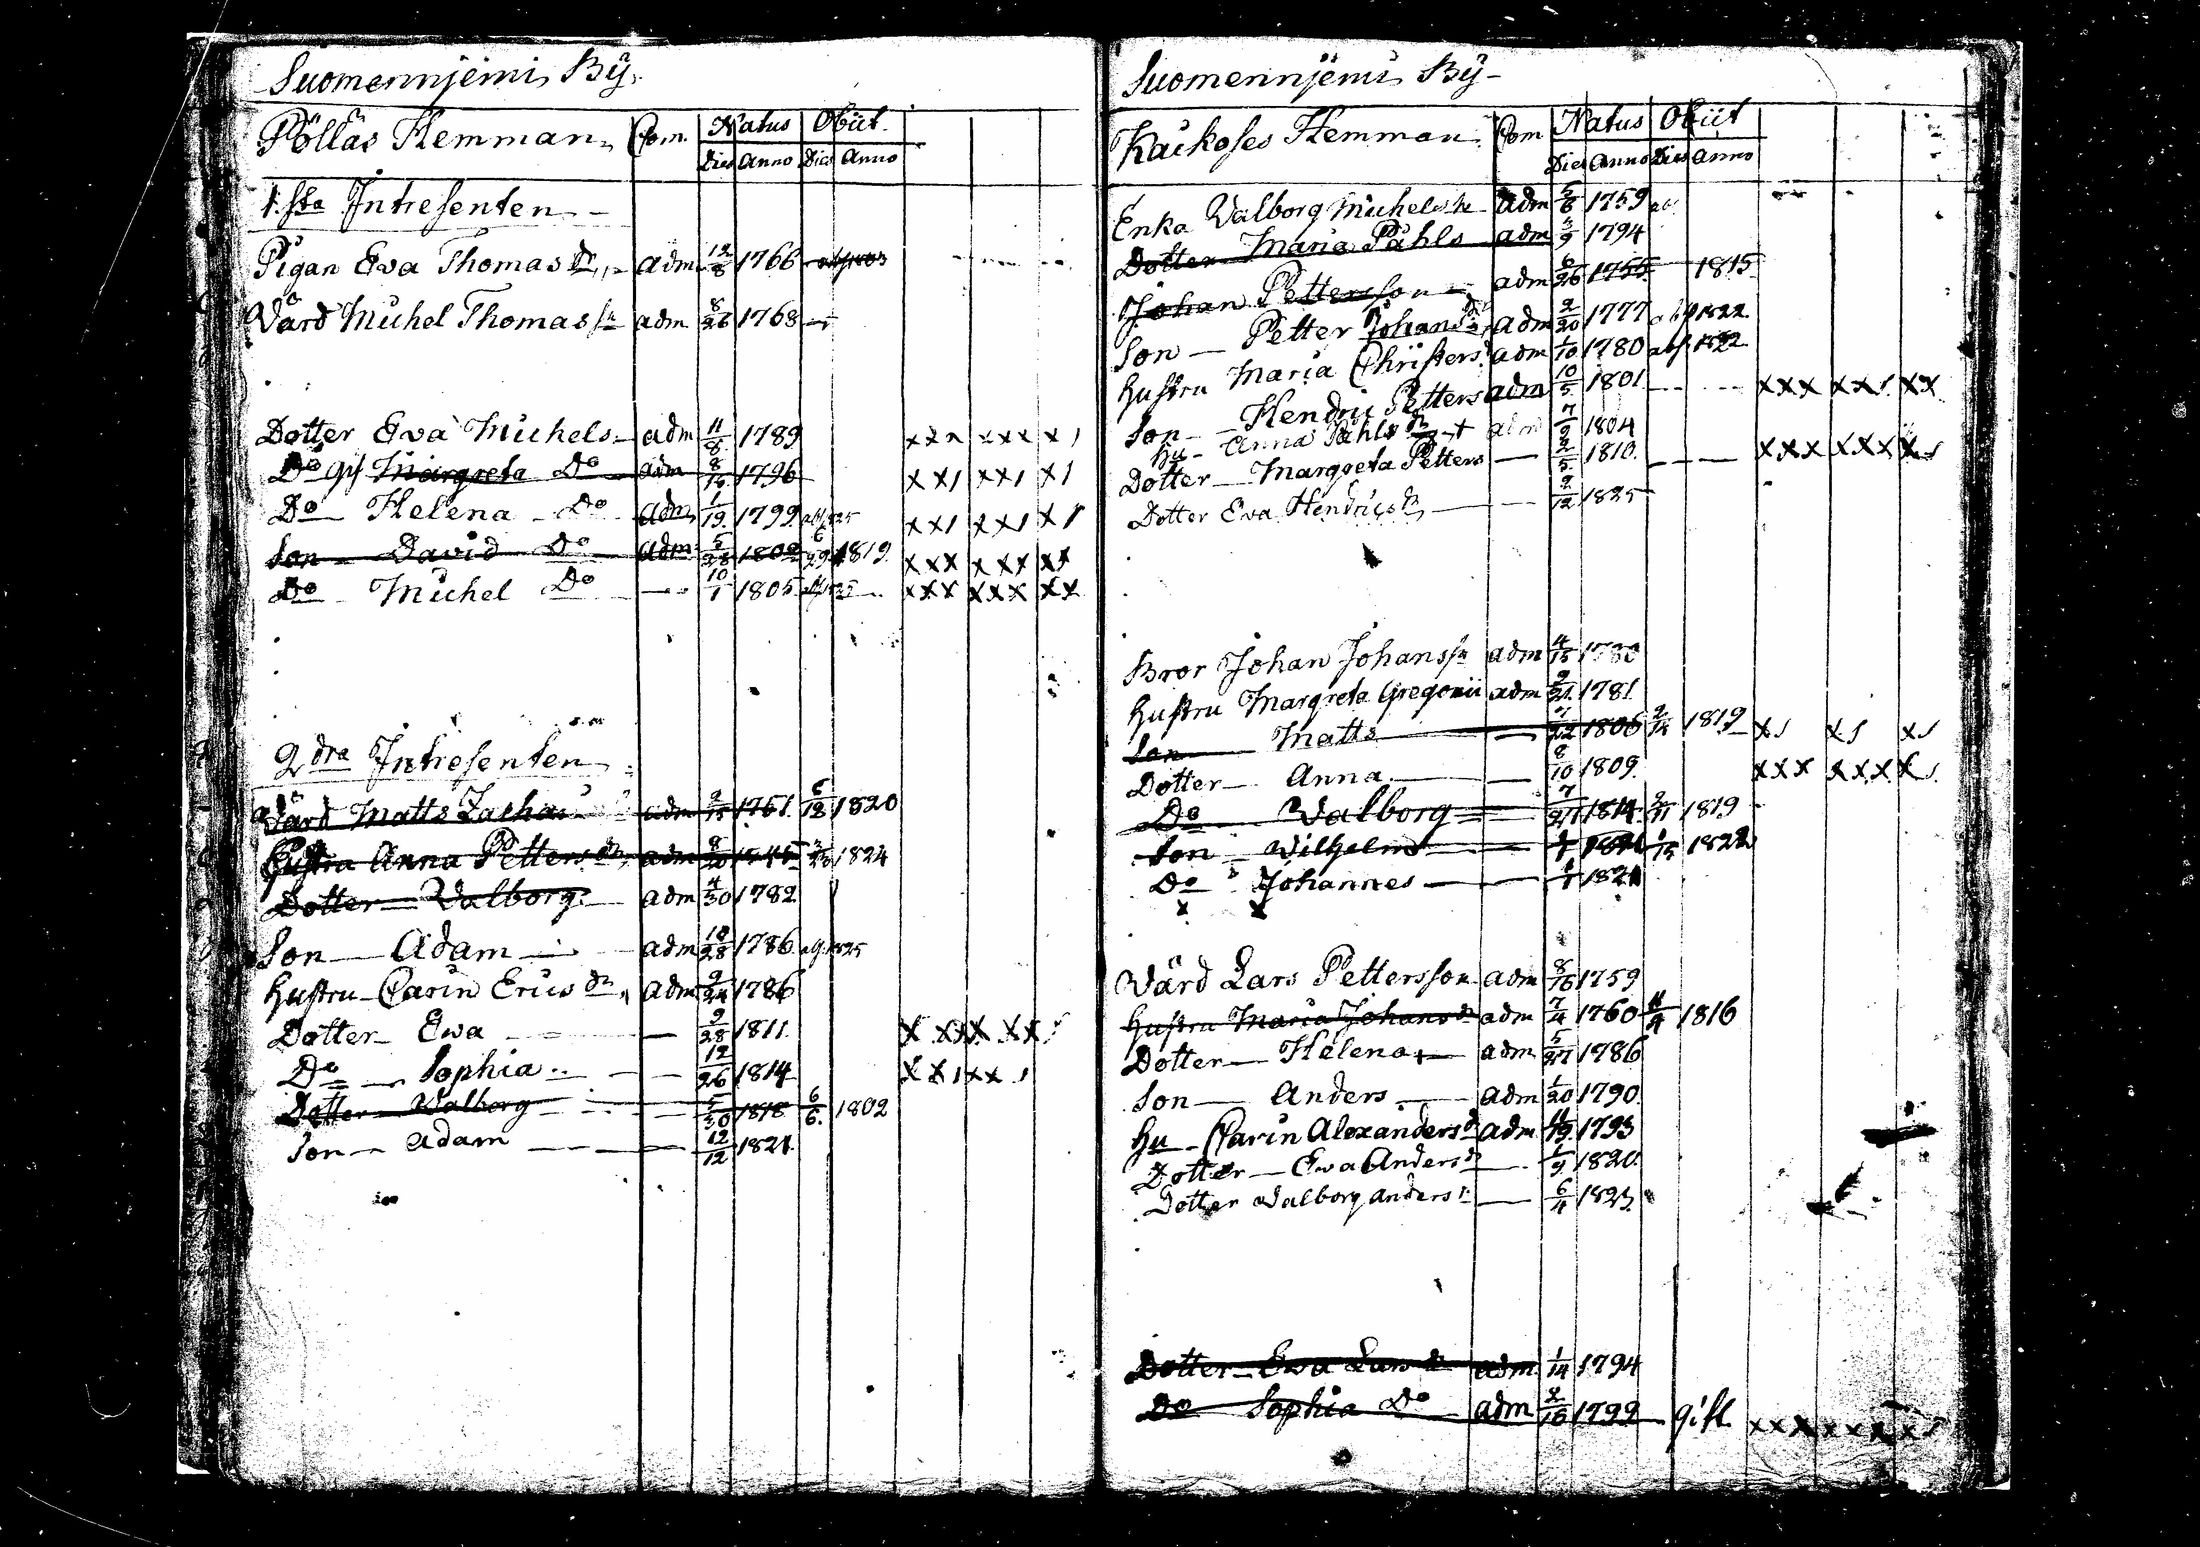 Suomennjemi By
Pölläs Hemman Com. Natus Obiit
Dies Anno Dies Anno
1:sta Intresenten
Pigan Eva Thomas dr adm 12/8 1766
Värd Michel Thomas sn adm 8/26 1768
Dotter Eva Michels adm 11/8 1789 xxx xxx x1
Do gif Margreta Do adm 8/15 1796 xx1 xx1 x1
Do Helena Do adm 1/19 1799 abf 1825 xx1 xx1 x1
Son David Do adm 5/28 1802 6/29 1819 xxx xxx xx
Do Michel Do 10/1 1805 xxx xxx xx
2dra Intresenten
Värd Matts Zachau adm 2/15 1761 6/12 1820
Hustru Anna Petters dr adm 1824
Dotter Valborg adm 4/30 1782
Son Adam adm 10/28 1786 1825
Hustru Carin Erics dr adm 9/24 1786
Dotter Ewa 9/28 1811 x xxx xx
Do Sophia 12/26 1814 xx1xx1
Dotter Walborg 5/30 1818 6/6 1802
Son Adam 12/12 1821
Suomennjemi By
Kaikoses Hemman Com Natus Obiit
Dies Anno Dies Anno
Enka Valborg Michels dr adm 5/8 1759
Dotter Maria Påhls adm 3/9 1794
Johan Pettersson adm 6/26 1755 1815
Son Petter Johans adm 2/20 1777 abf 1822
Hustru Maria Christers adm 1/10 1780 abf 1822
Son Hendric Petters adm 10/5 1801 xxx xx1 xx
Hu Anna Påhls dr adm 7/9 1804
Dotter Margreta Petters 2/5 1810 xxx xxx x1
Dotter Eva Hendrics dr 2/12 1825
Bror Johan Johanssn adm 4/15 1780
Hustru Margreta Gregorii adm 9/21 1781
Son Matts 7/22 1806 2/14 1819 x1 x1 x1
Dotter Anna 8/10 1809 xxx xxx x1
Do Valborg 7/27 1814 2/11 1819
Son Wilhelm 1/15 1822
Do Johannes 1821
Värd Lars Pettersson adm 8/16 1759
Hustru Maria Johans dr adm 7/4 1760 11/4 1816
Dotter Helena adm 5/27 1786
Son Anders adm 1/20 1790
Hu Carin Alexanders dr adm 11/19 1793
Dotter Ewa Anders dr 1/9 1820
Dotter Valborg Anders dr 6/4 1823
Dotter Ewa Lars dr adm 1/14 1794
Do Sophia Do adm 2/16 1799 gift xxx xxx x1